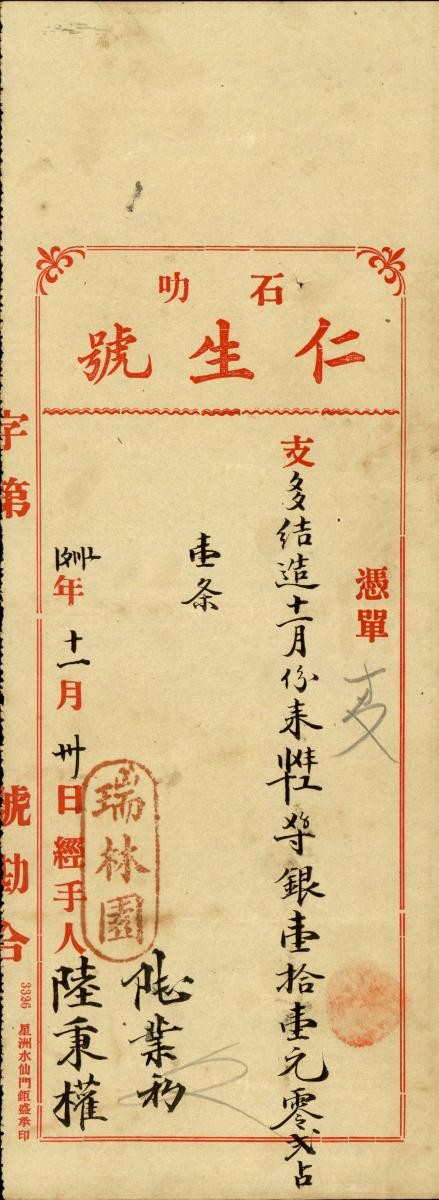 石叻
仁生號
憑單
支多结造十一月份来
银壹拾壹元零弍占
壹条
年十一月卅日經手人陸秉權
瑞林園
業
字第 號勘合
3326 星洲水仙門鉅盛承印